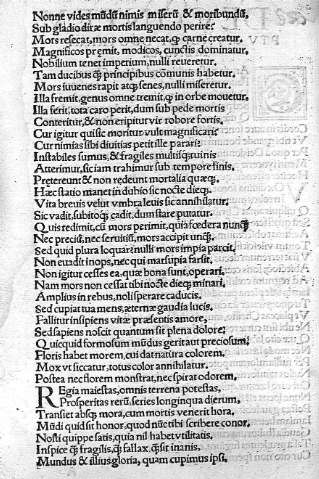 Nonne vides mūdū nimis miserū & moribundū,
Sub gladio diræ mortis languendo perire?
Mors resecat, mors omne necat, qᷓ carne creatur,
Magnificos premit, modicos, cunctis dominatur,
Nobilium tenet imperium, nulli reueretur.
Tam ducibus qᷓ principibus cōmunis habetur,
Mors iuuenes rapit atqꝫ senes, nulli miseretur.
Illa fremit, genus omne tremit, qᷓ in orbe mouetur,
Illa ferit, tota caro perit, dum sub pede mortis
Conteritur, & non eripitur vir robore fortis.
Cur igitur quisqꝫ moritur vult magnificari?
Cur nimias sibi diuitias petit ille parari?
Instabiles sumus, & fragiles multisqꝫ ruinis
Atterimur, sic iam trahimur sub tempore finis.
Pretereunt & non redeunt mortalia quæqꝫ.
Hæc statio manet in dubio sic nocte dieqꝫ.
Vita breuis velut vmbra leuis sic annihilatur,
Sic vadit, subitoqꝫ cadit, dum stare putatur.
Quis redimit, cū mors perimit, quia fœdera nunqᷓ
Nec preciū, nec seruitiū, mors accipit vnqᷓ.
Sed quid plura loquar? nulli mors impia parcit.
Non euadit inops, nec qui marsupia farsit.
Non igitur cesses ea, quæ bona sunt, operari,
Nam mors non cessat tibi nocte dieqꝫ minari.
Amplius in rebus, noli sperare caducis.
Sed cupiat tua mens, æternæ gaudia lucis.
Fallitur insipiens vitæ præsentis amore,
Sed sapiens noscit quantum sit plena dolore;
Quicquid formosum mūdus gerit aut preciosum,
Floris habet morem, cui dat natura colorem.
Mox vt siccatur, totus color annihilatur.
Postea nec florem monstrat, nec spirat odorem.
REgia maiestas, omnis terrena potestas,
Prosperitas rerū, series longinqua dierum,
Transiet absqꝫ mora, cum mortis venerit hora.
Mūdi quid sit honor, quod nūc tibi scribere conor,
Nosti quippe satis, quia nil habet vtilitatis.
Inspice qᷓ fragilis, qᷓ fallax, qᷓ sit inanis,
Mundus & illius gloria, quam cupimus ipsi,